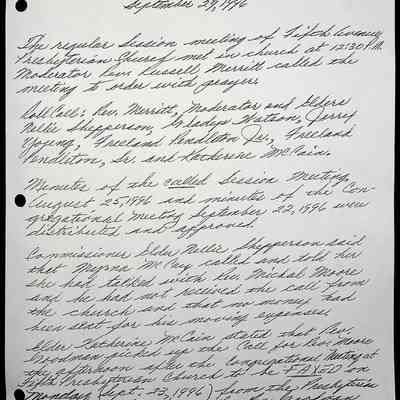 September 29, 1996
The regular Session meeting of Fifth Avenue
Presbyterian Church met in church at 12:30 P.M.
Moderator Rev. Russell Merritt called the
meeting to order with prayer.
Roll Call: Rev. Merritt, Moderator and Elders
Nellie Shepperson, Gladys Watson, Jerry
Young, Freeland Pendleton Jr., Freeland
Pendleton, Sr. and Katherine McCain.
Minutes of the called Session Meeting,
August 25, 1996 and minutes of the Con-
gregational Meeting September 22, 1996 were
distributed and approved.
Commissioner Elder Nellie Shepperson said
that Myrna McCay called and told her
she had talked with Rev. Michal Moore
and he had not received the call from
the church and that no money had
been sent for his moving expenses.
Elder Katherine McCain stated that Rev.
Goodman picked up the Call for Rev. Moore
the afternoon after the congregational Meeting at
Fifth Presbyterian Church to be FAXED on
Monday, Sept. 23, 1996) from the Presbytery